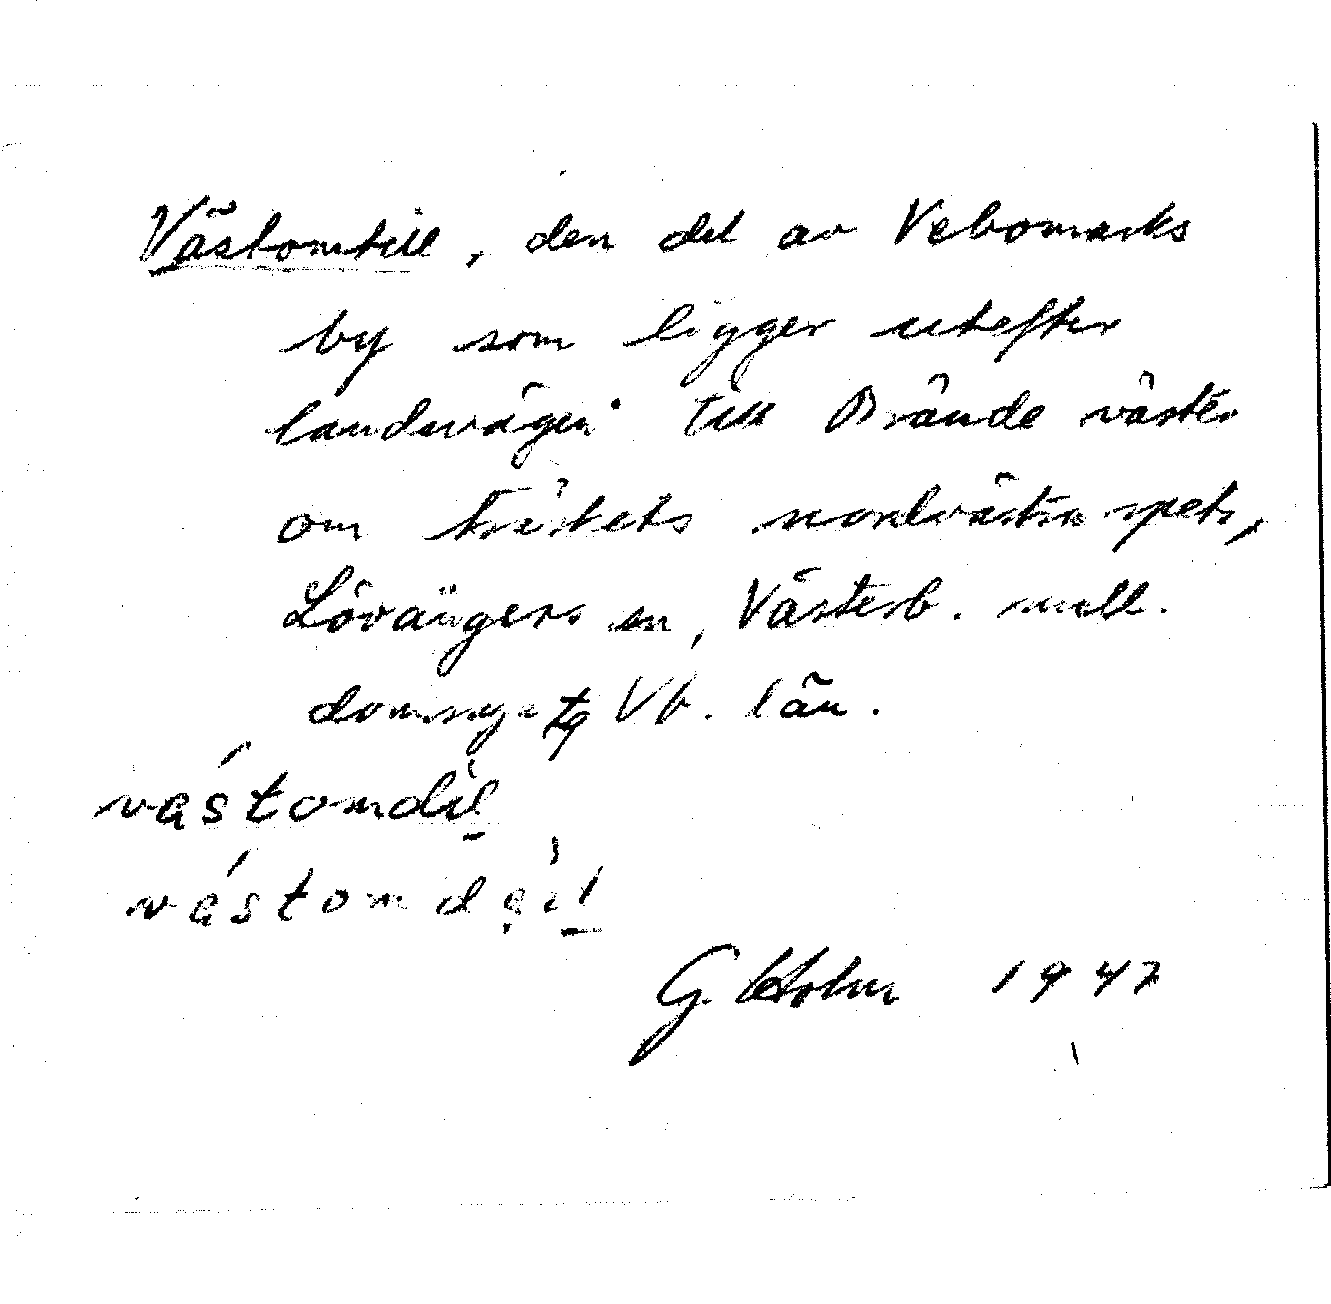 Västomtill, den del av Vebomarks
by som ligger utefter
landsvägen till Brände väster
om träskets nordvästra spets,
Lövångers sn, Västerb. mell.
domsaga Vb. län.
västomdil
västomdail
G. Holm 1947